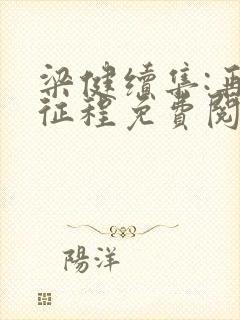 梁健續集:再
征程免費閱
陽洋